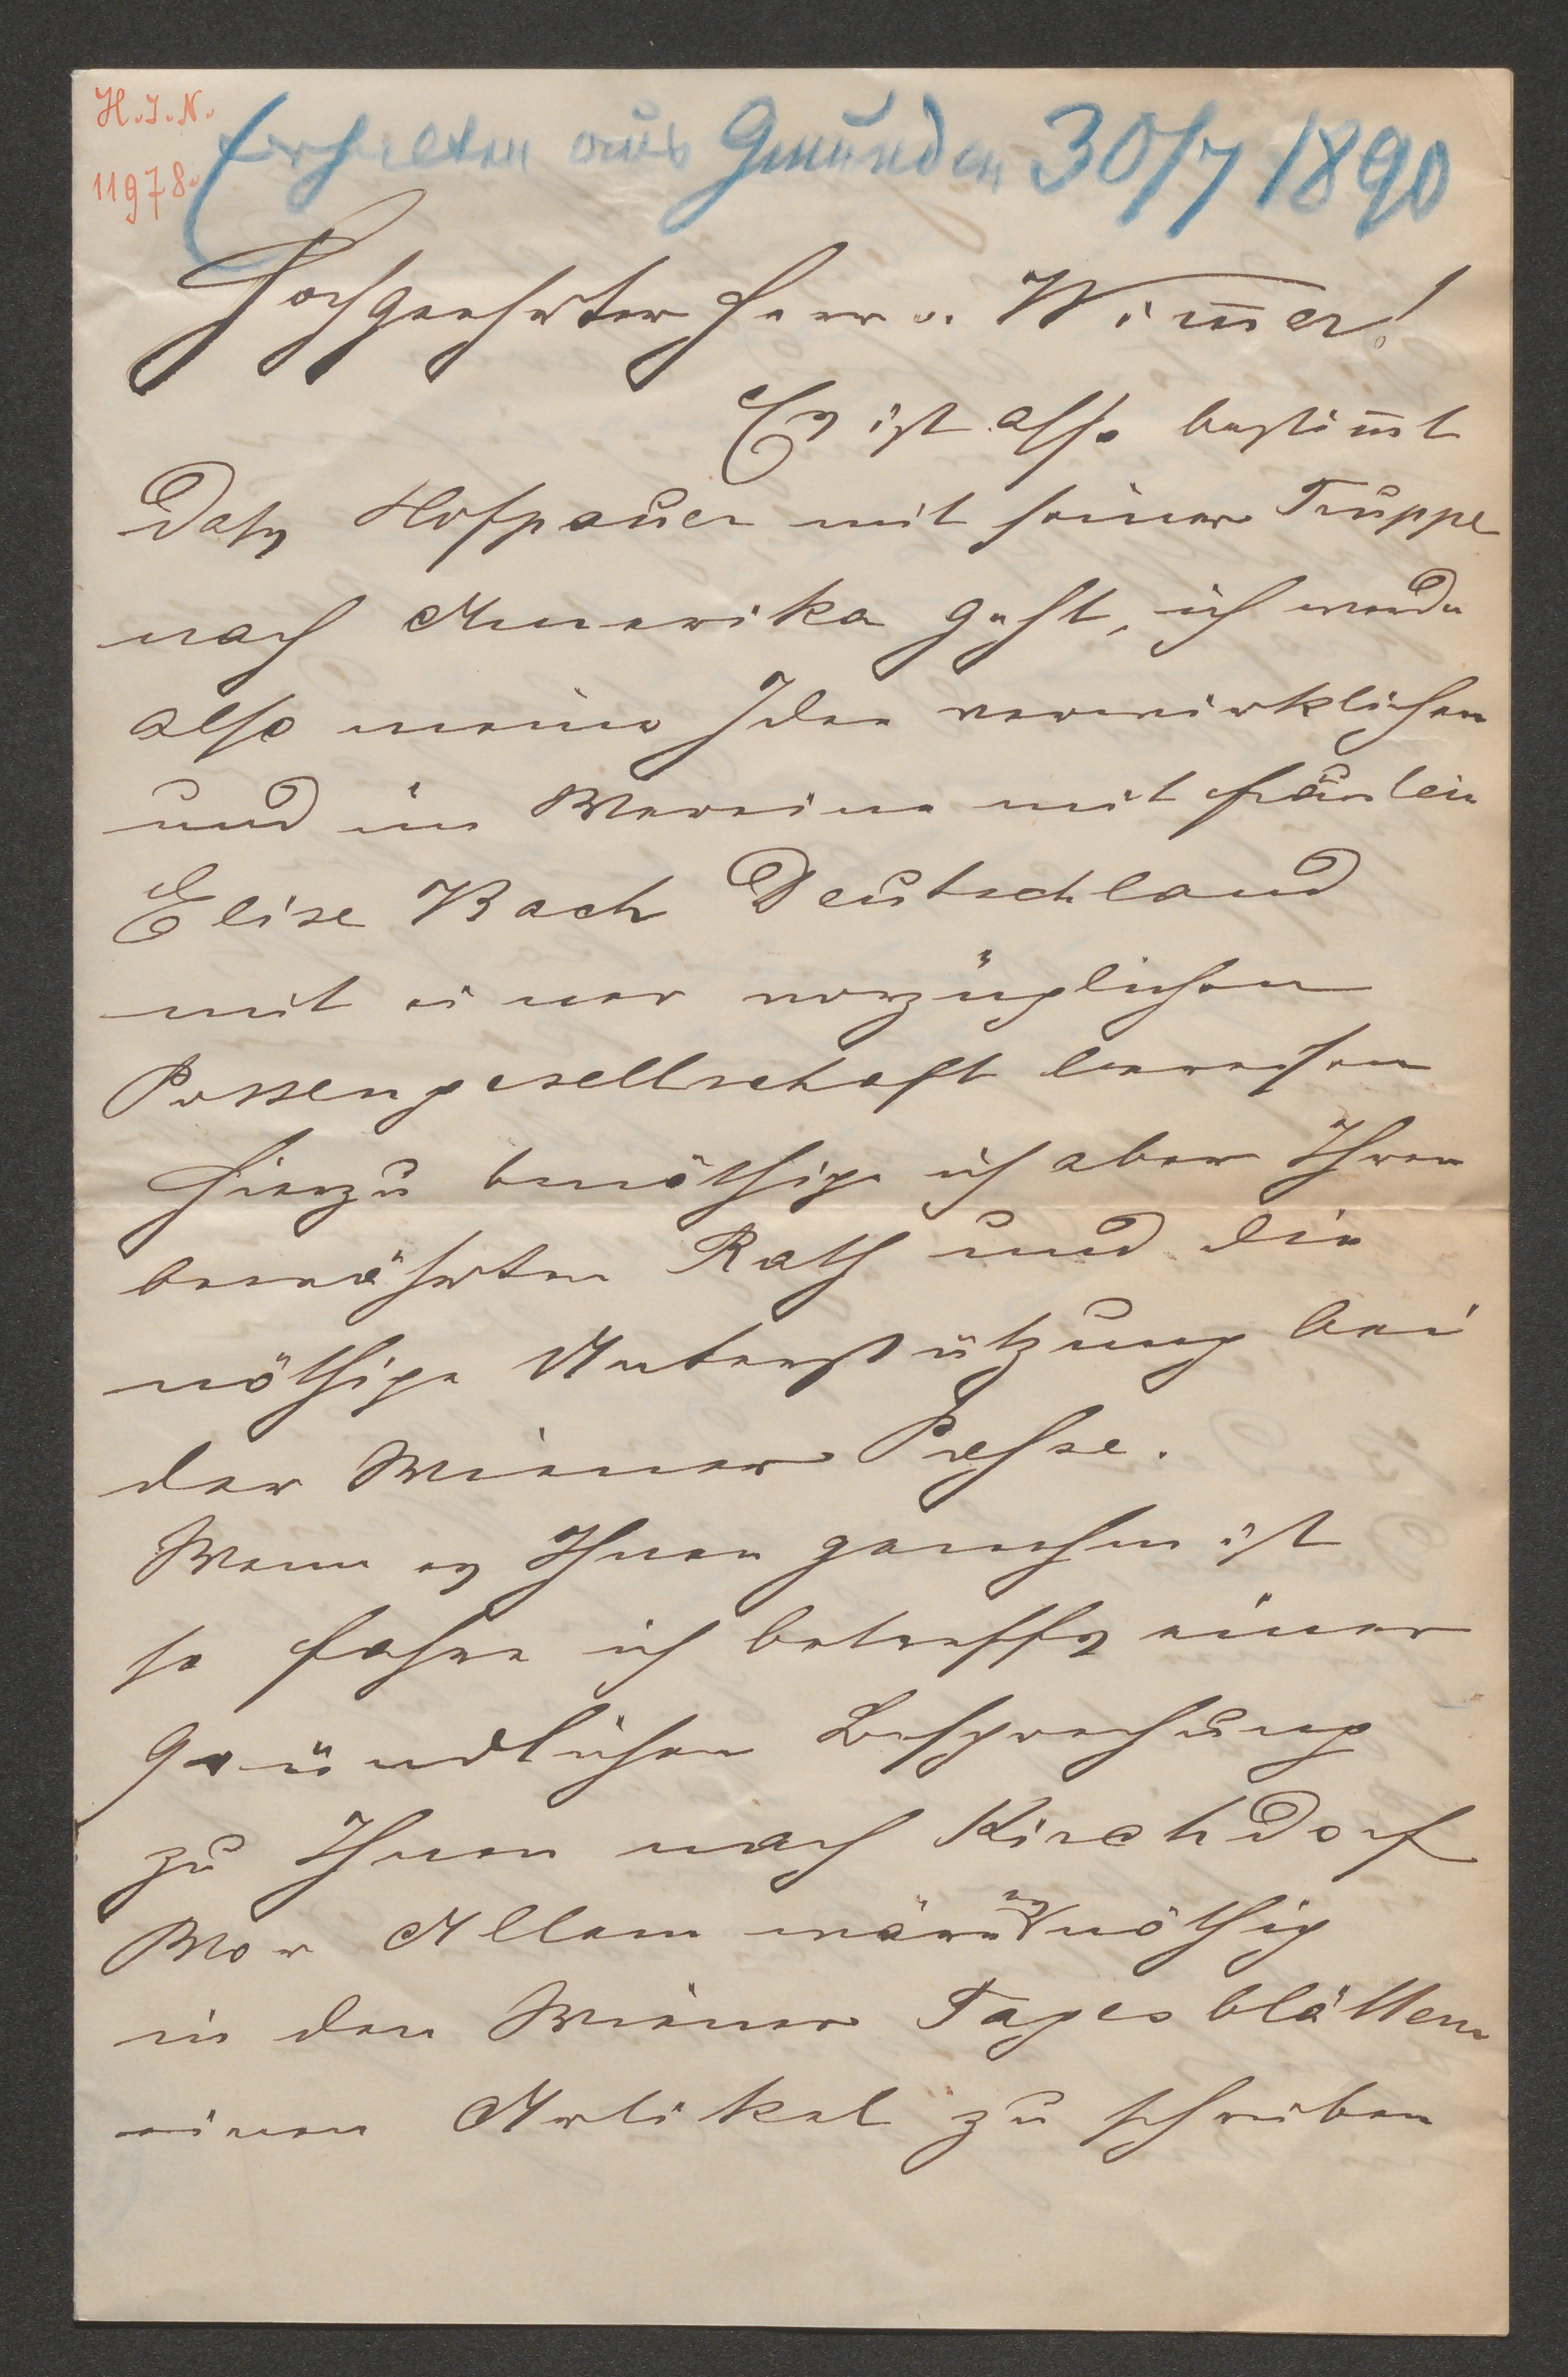 H. I. N.
11978.
Erhalten aus Gmunden 30/7 1890
Hochgeehrter Herr v. Wim̅er!
Es ist also bestim̅t
daß Hofpauer mit seiner Truppe
nach Amerika geht, ich werde
also meine Idee verwirklichen
und im Vereine mit Fräulein
Elise Bach Deutschland
mit einer vorzüglichen
Possengesellschaft bereisen
Hierzu benöthige ich aber Ihren
bewährten Rath und die
nöthige Unterstützung bei
der Wiener Presse.
Wenn es Ihnen genehm ist
so fahre ich betreffs einer
gründlichen Besprechung
zu Ihnen nach Kirchdorf
Vor Allem wäre es nöthig
in den Wiener Tagesblättern
einen Artikel zu schreiben